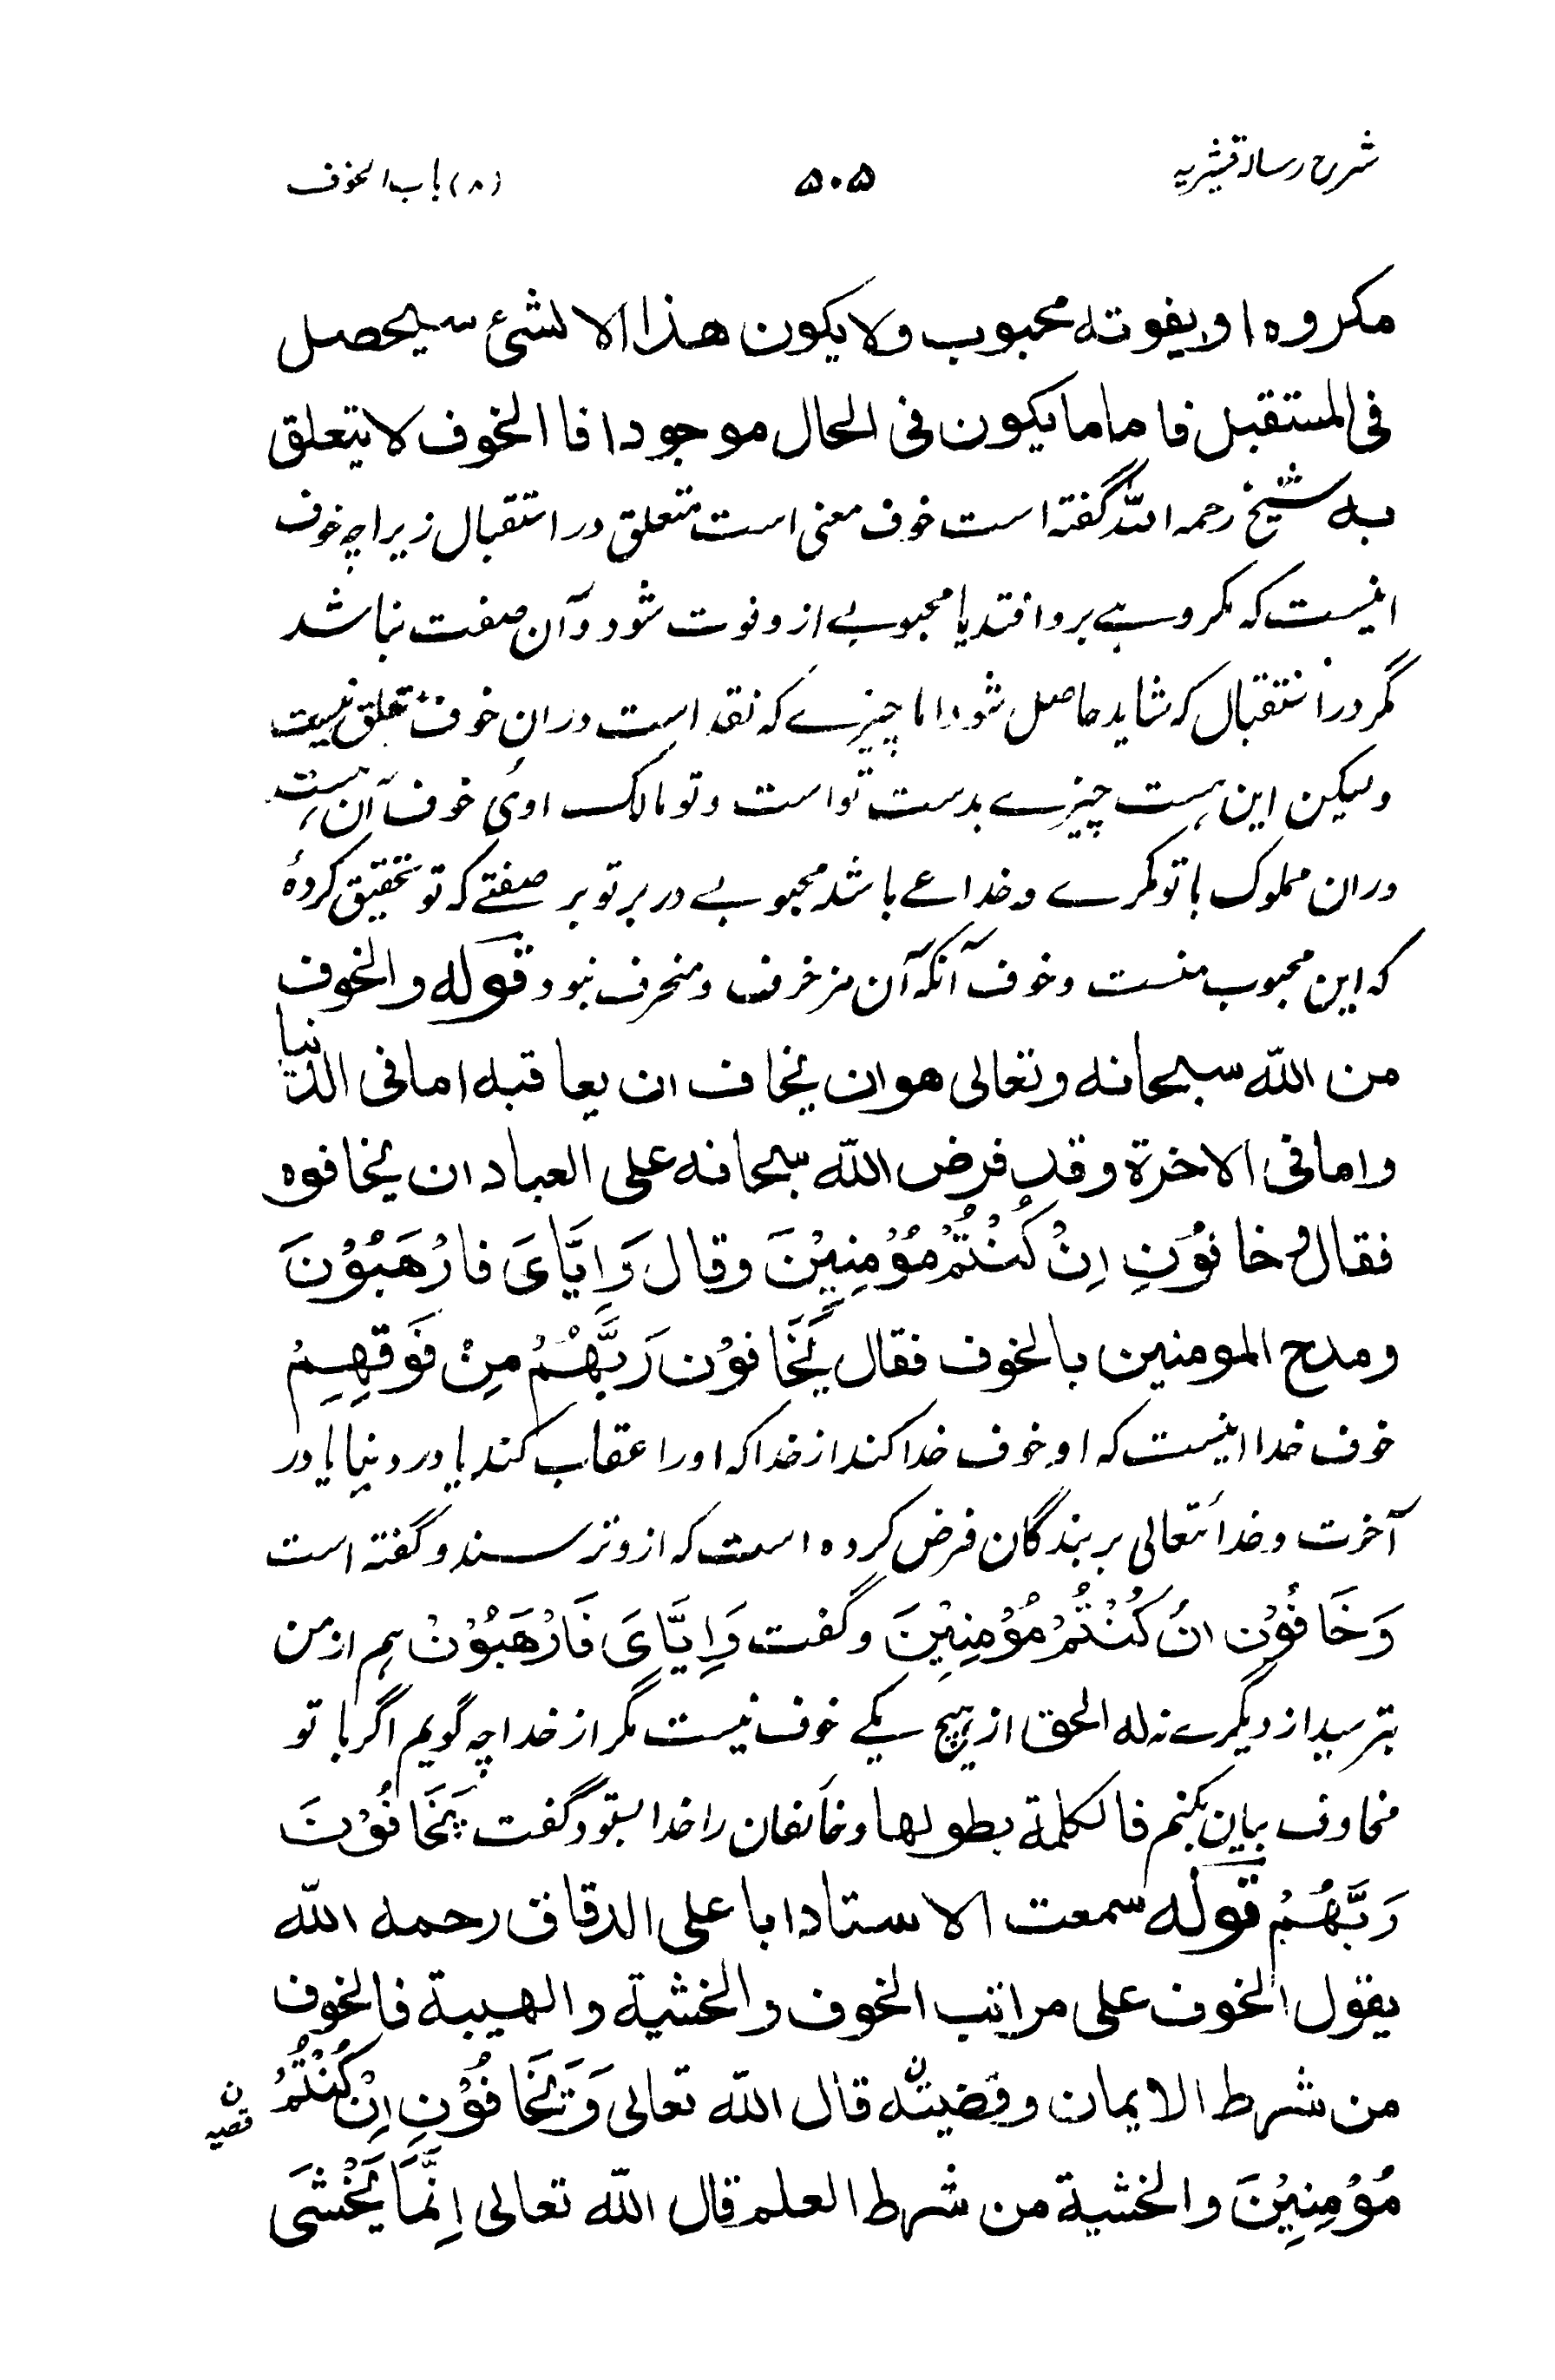 شرح رسالہ قشیریہ ۵۰۵ (۸) باب الخوف
مکروہ او یفوتہ محبوب ولا یکون ھذا الا لشئ سیحصل
فی المستقبل فاما ما یکون فی الحال موجودا فا الخوف لا یتعلق
بہ شیخ رحمہ اللہ گفتہ است خوف معنی است متعلق در استقبال زیراچہ خوف
اینست کہ مکروہے برو افتد یا محبوبے ازو فوت شود و آن صفت نباشد
مگر در استقبال کہ شاید حاصل شود اما چیزے کہ نقد است دران خوف تعلق نیست
ولیکن این ہست چیزے بدست تو است و تو مالک اوئی خوف آن ہست
دران مملوک با تو مکرے و خداعے باشد محبوبے در بر تو بر صفتے کہ تو تحقیق کردۂ
کہ این محبوب منست و خوف آنکہ آن مزخرف و منحرف نبود قولہ والخوف
من اللہ سبحانہ وتعالی ھو ان یخاف ان یعاقبہ اما فی الدنیا
واما فی الاخرة وقد فرض اللہ سبحانہ علی العباد ان یخافوہ
فقال وخافُوْنِ اِنْ کُنْتُمْ مُؤْمِنِیْنَ وقال وَاِیَّایَ فَارْھَبُوْنَ
ومدح المومنین بالخوف فقال یَخَافُوْنَ رَبَّھُمْ مِنْ فَوْقِھِمْ
خوف خدا اینست کہ او خوف خدا کند از خدا کہ او را عقاب کند یا در دنیا یا در
آخرت و خدا تعالی بر بندگان فرض کردہ است کہ ازو ترسند و گفتہ است
وَخَافُوْنِ اِنْ کُنْتُمْ مُؤْمِنِیْنَ و گفت وَاِیَّایَ فَارْھَبُوْنْ ہم از من
بترسید از دیگرے نہ لہ الحق از ہیچ یکے خوف نیست مگر از خدا چہ گویم اگر با تو
مخاوف بیان بکنم فالکلمة بطولھا و خائفان را خدا بستود گفت یَخَافُوْنَ
رَبَّھُمْ قولہ سمعت الاستاد ابا علی الدقاق رحمہ اللہ
یقول الخوف علی مراتب الخوف والخشیة والھیبة فالخوف
من شرط الایمان وقضیتہ قال اللہ تعالی وَتَخَافُوْنِ اِنْ کُنْتُمْ
ن
قضیہ
مُؤْمِنِیْنَ والخشیة من شرط العلم قال اللہ تعالی اِنَّمَا یَخْشَی